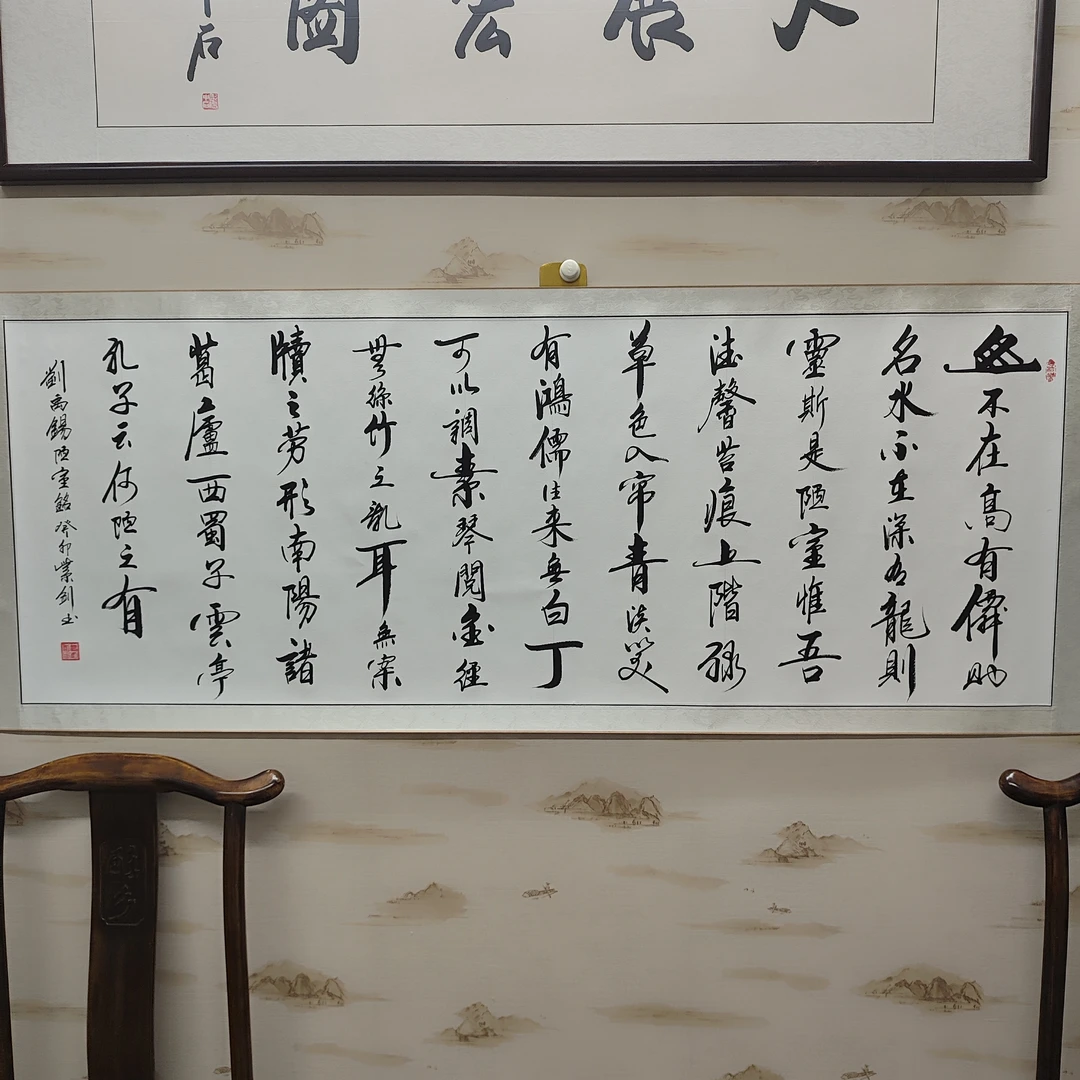 大展宏圖
石
山不在高有僊則
名水不在深有龍則
靈斯是陋室惟吾
德馨苔痕上階緑
草色入帘青談笑
有鴻儒往来無白丁
可以調素琴閱金經
無絲竹之亂耳無案
牘之勞形南陽諸
葛廬西蜀子雲亭
孔子云何陋之有
劉禹錫陋室銘癸卯業剑书